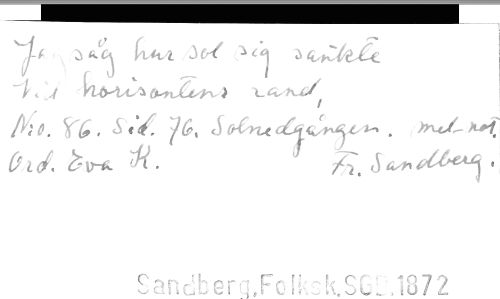 Jag såg hur sol sig sänkte
Vid horisontens rand,
Nro. 86. Sid. 76. Solnedgången. met not.
Ord. Eva K. Fr. Sandberg.
Sandberg, Folksk. SGB. 1872